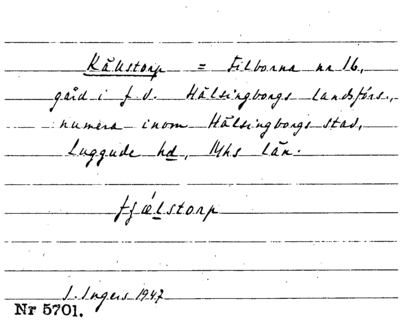 Källstorp = Filborna nr 16,
gård i f.d. Hälsingborgs landsförs.,
numera inom Hälsingborgs stad,
Luggude hd, Mhs län.
S. Ingers 1947
Nr 5701.